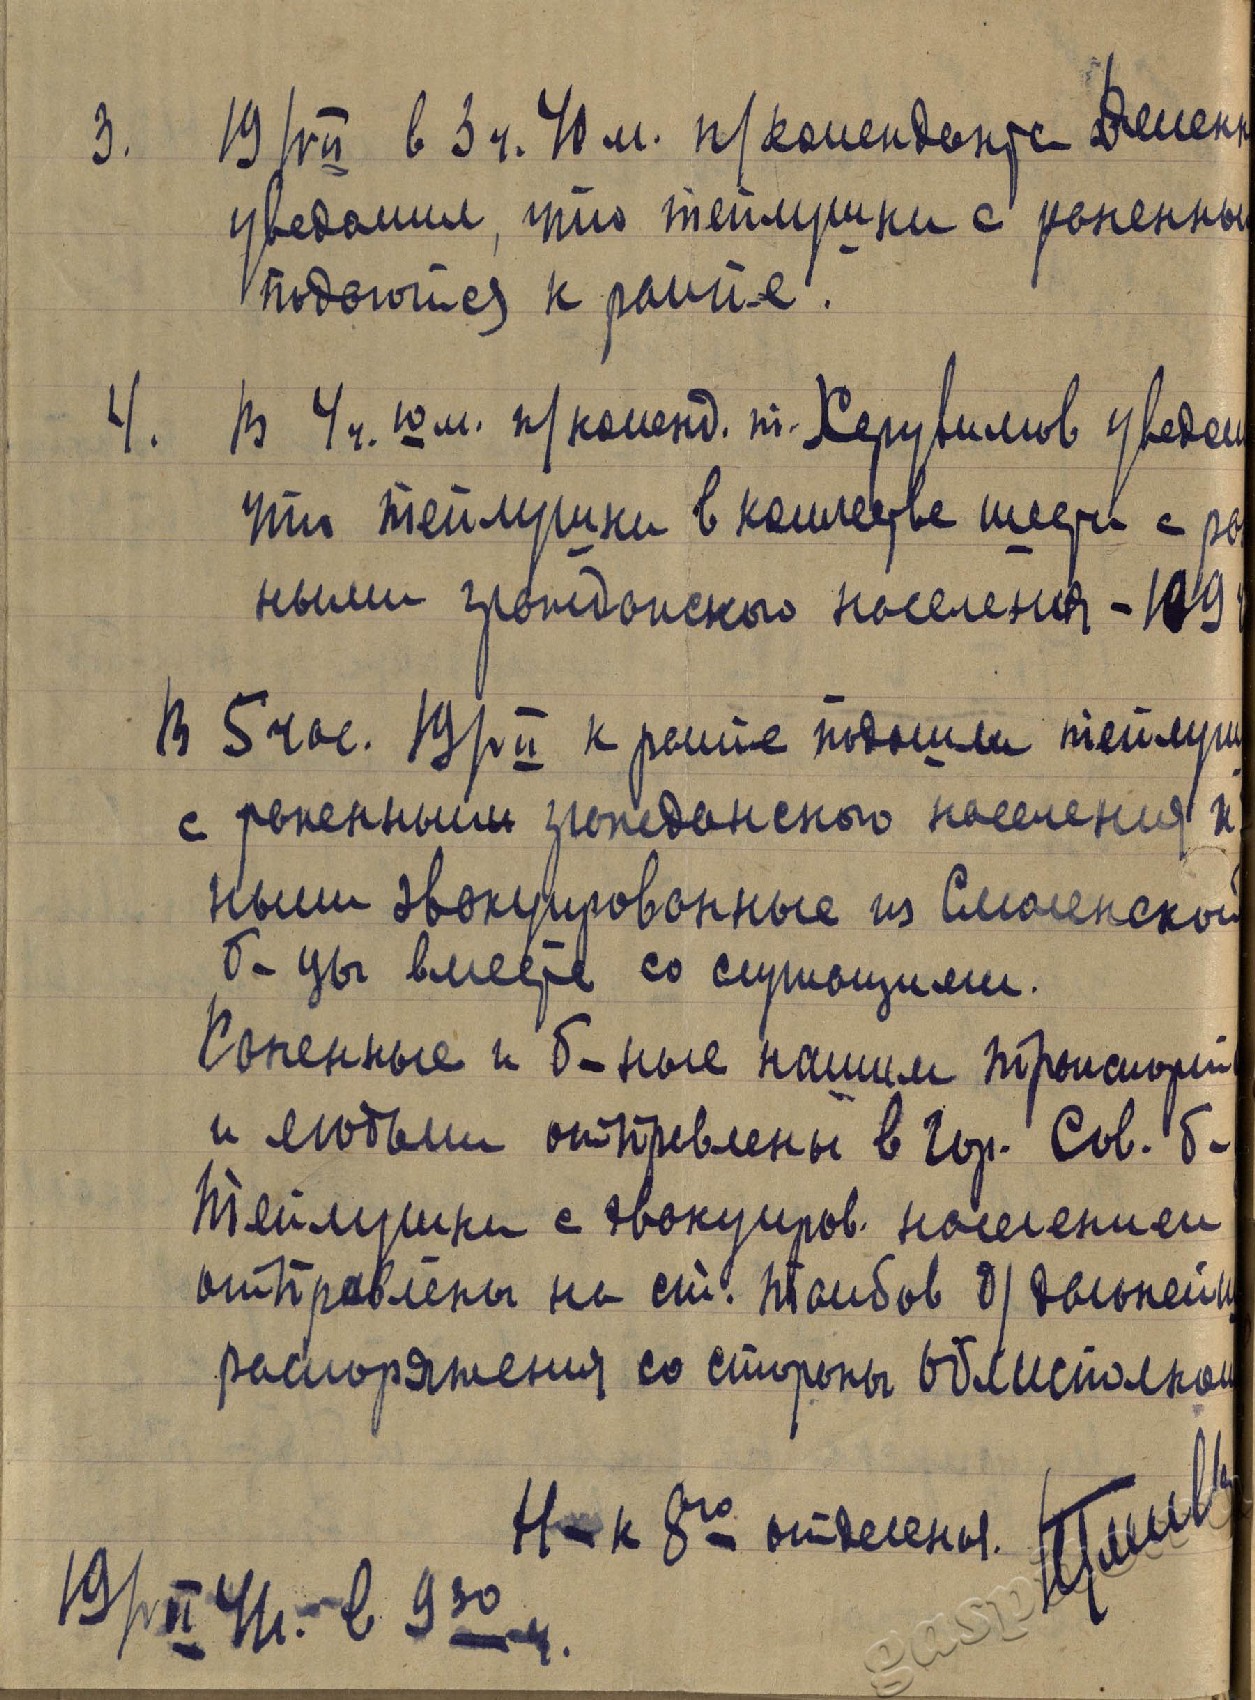 3. 19/VII в 3 ч. 40 м. п/коменданта Деменн
уведомил, что теплушки с раненны
подаются к рампе.
4. В 4 ч. 10 м. п/коменд. т. Херувимов уведом
что теплушки в количестве шести с ра
ными гражданского населения - 109
В 5 час. 19/VII к рампе подошли теплуш
с раненными гражданского населения и
ными эвакуированные из Смоленской
б-цы вместе со служащими.
Раненные и б-ные нашим транспорт
и людьми отправлены в гор. Сов. б-
Теплушки с эвакуиров. населением
отправлены на ст. Тамбов д/дальнейш
распоряжения со стороны облисполком
Н-к 8го отделения.
19/VII 41 г. в 9 30 ч.
gasp